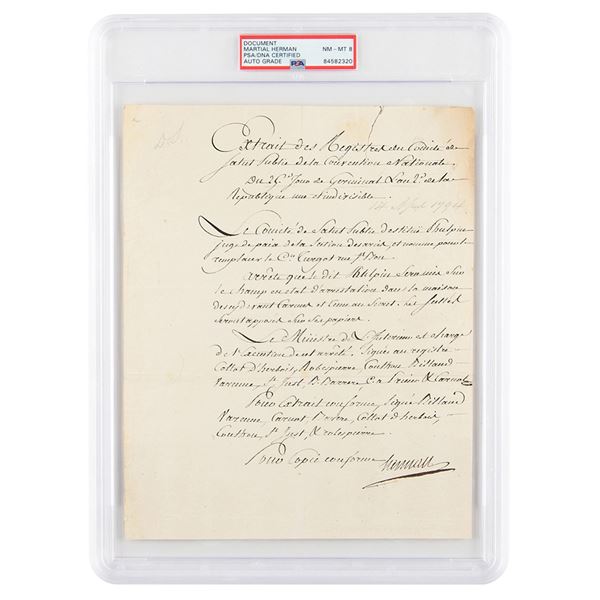 DOCUMENT
MARTIAL HERMAN
PSA/DNA CERTIFIED
AUTO GRADE
NM - MT 8
PSA
84582320
D.S.
Extrait des Registres du Comité de
Salut Public de la Convention Nationale.
Du 25e Jour de Germinal L'an 2e de la
République une et indivisible.
14 April 1794
Le Comité de Salut Public destitue Phulpin
juge de paix de la Section des arcis, et nomme pour le
remplacer le Cen Turgot rue St Bon.
arrête que le dit Phulpin Sera mis Sur
le champ en état d'arrestation dans la maison
des cy devant Carmes et tenu au Secret. Les Scellés
Seront apposés Sur Ses papiers.
Le Ministre de L'Interieur est chargé
de l'Execution du present arrêté. Signé au registre
Collot d'herbois, Robespierre, Couthon, Billaud
Varenne, St Just, B. Barrere, C. a. Prieur & Carnot.
Pour Extrait conforme, Signé Billaud
Varenne, Carnot, Barrere, Collot d'herbois,
Couthon, St Just, & robespierre.
Pour Copie conforme
herman